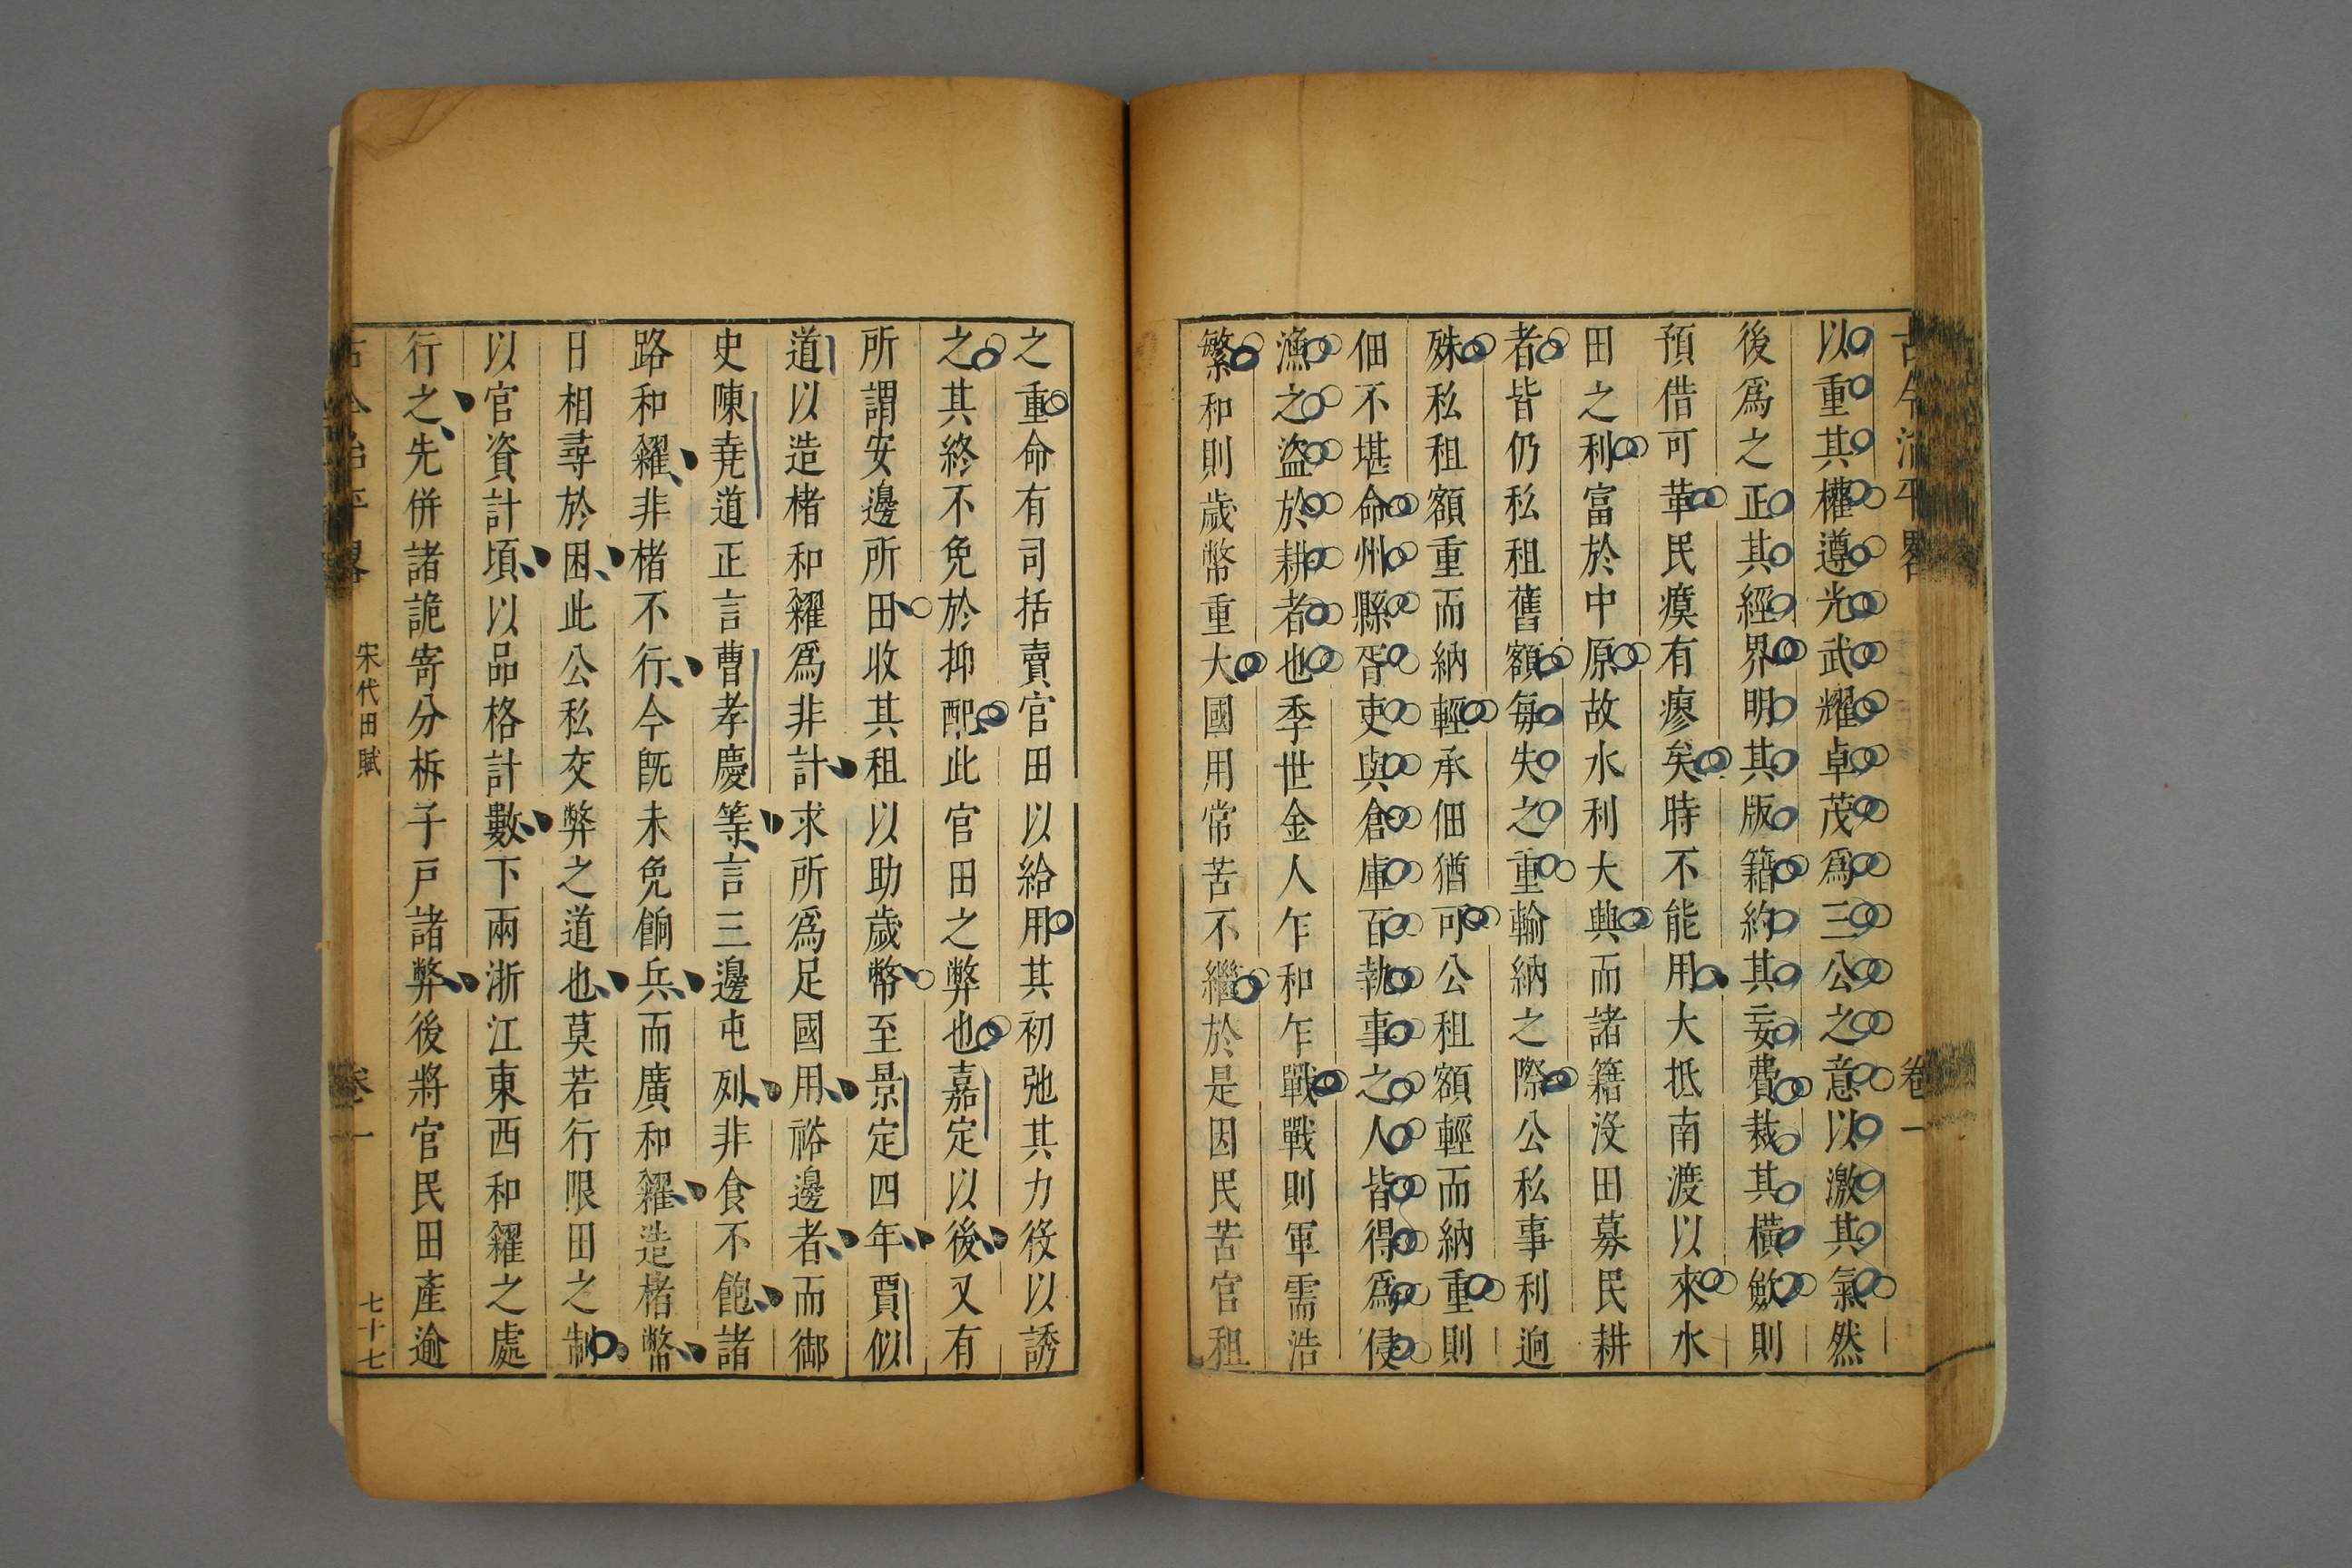 古今治平畧 卷一
以重其權遵光武耀卓茂爲三公之意以激其氣然
後爲之正其經界明其版籍約其妄費裁其橫歛則
預借可革民瘼有瘳矣時不能用大抵南渡以來水
田之利富於中原故水利大興而諸籍沒田募民耕
者皆仍私租舊額每失之重輸納之際公私事利逈
殊私租額重而納輕承佃猶可公租額輕而納重則
佃不堪命州縣胥吏與倉庫百執事之人皆得爲侵
漁之盜於耕者也季世金人乍和乍戰戰則軍需浩
繁和則歲幣重大國用常苦不繼於是因民苦官租
之重命有司括賣官田以給用其初弛其力役以誘
之其終不免於抑配此官田之弊也嘉定以後又有
所謂安邊所田收其租以助歲幣至景定四年賈似
道以造楮和糴爲非計求所爲足國用裕邊者而御
史陳堯道正言曹孝慶等言三邊屯列非食不飽諸
路和糴非楮不行今旣未免餉兵而廣和糴造楮幣
日相尋於困此公私交弊之道也莫若行限田之制
以官資計頃以品格計數下兩浙江東西和糴之處
行之先併諸詭寄分柝子戸諸弊後將官民田產逾
古今治平畧 宋代田賦 卷一 七十七